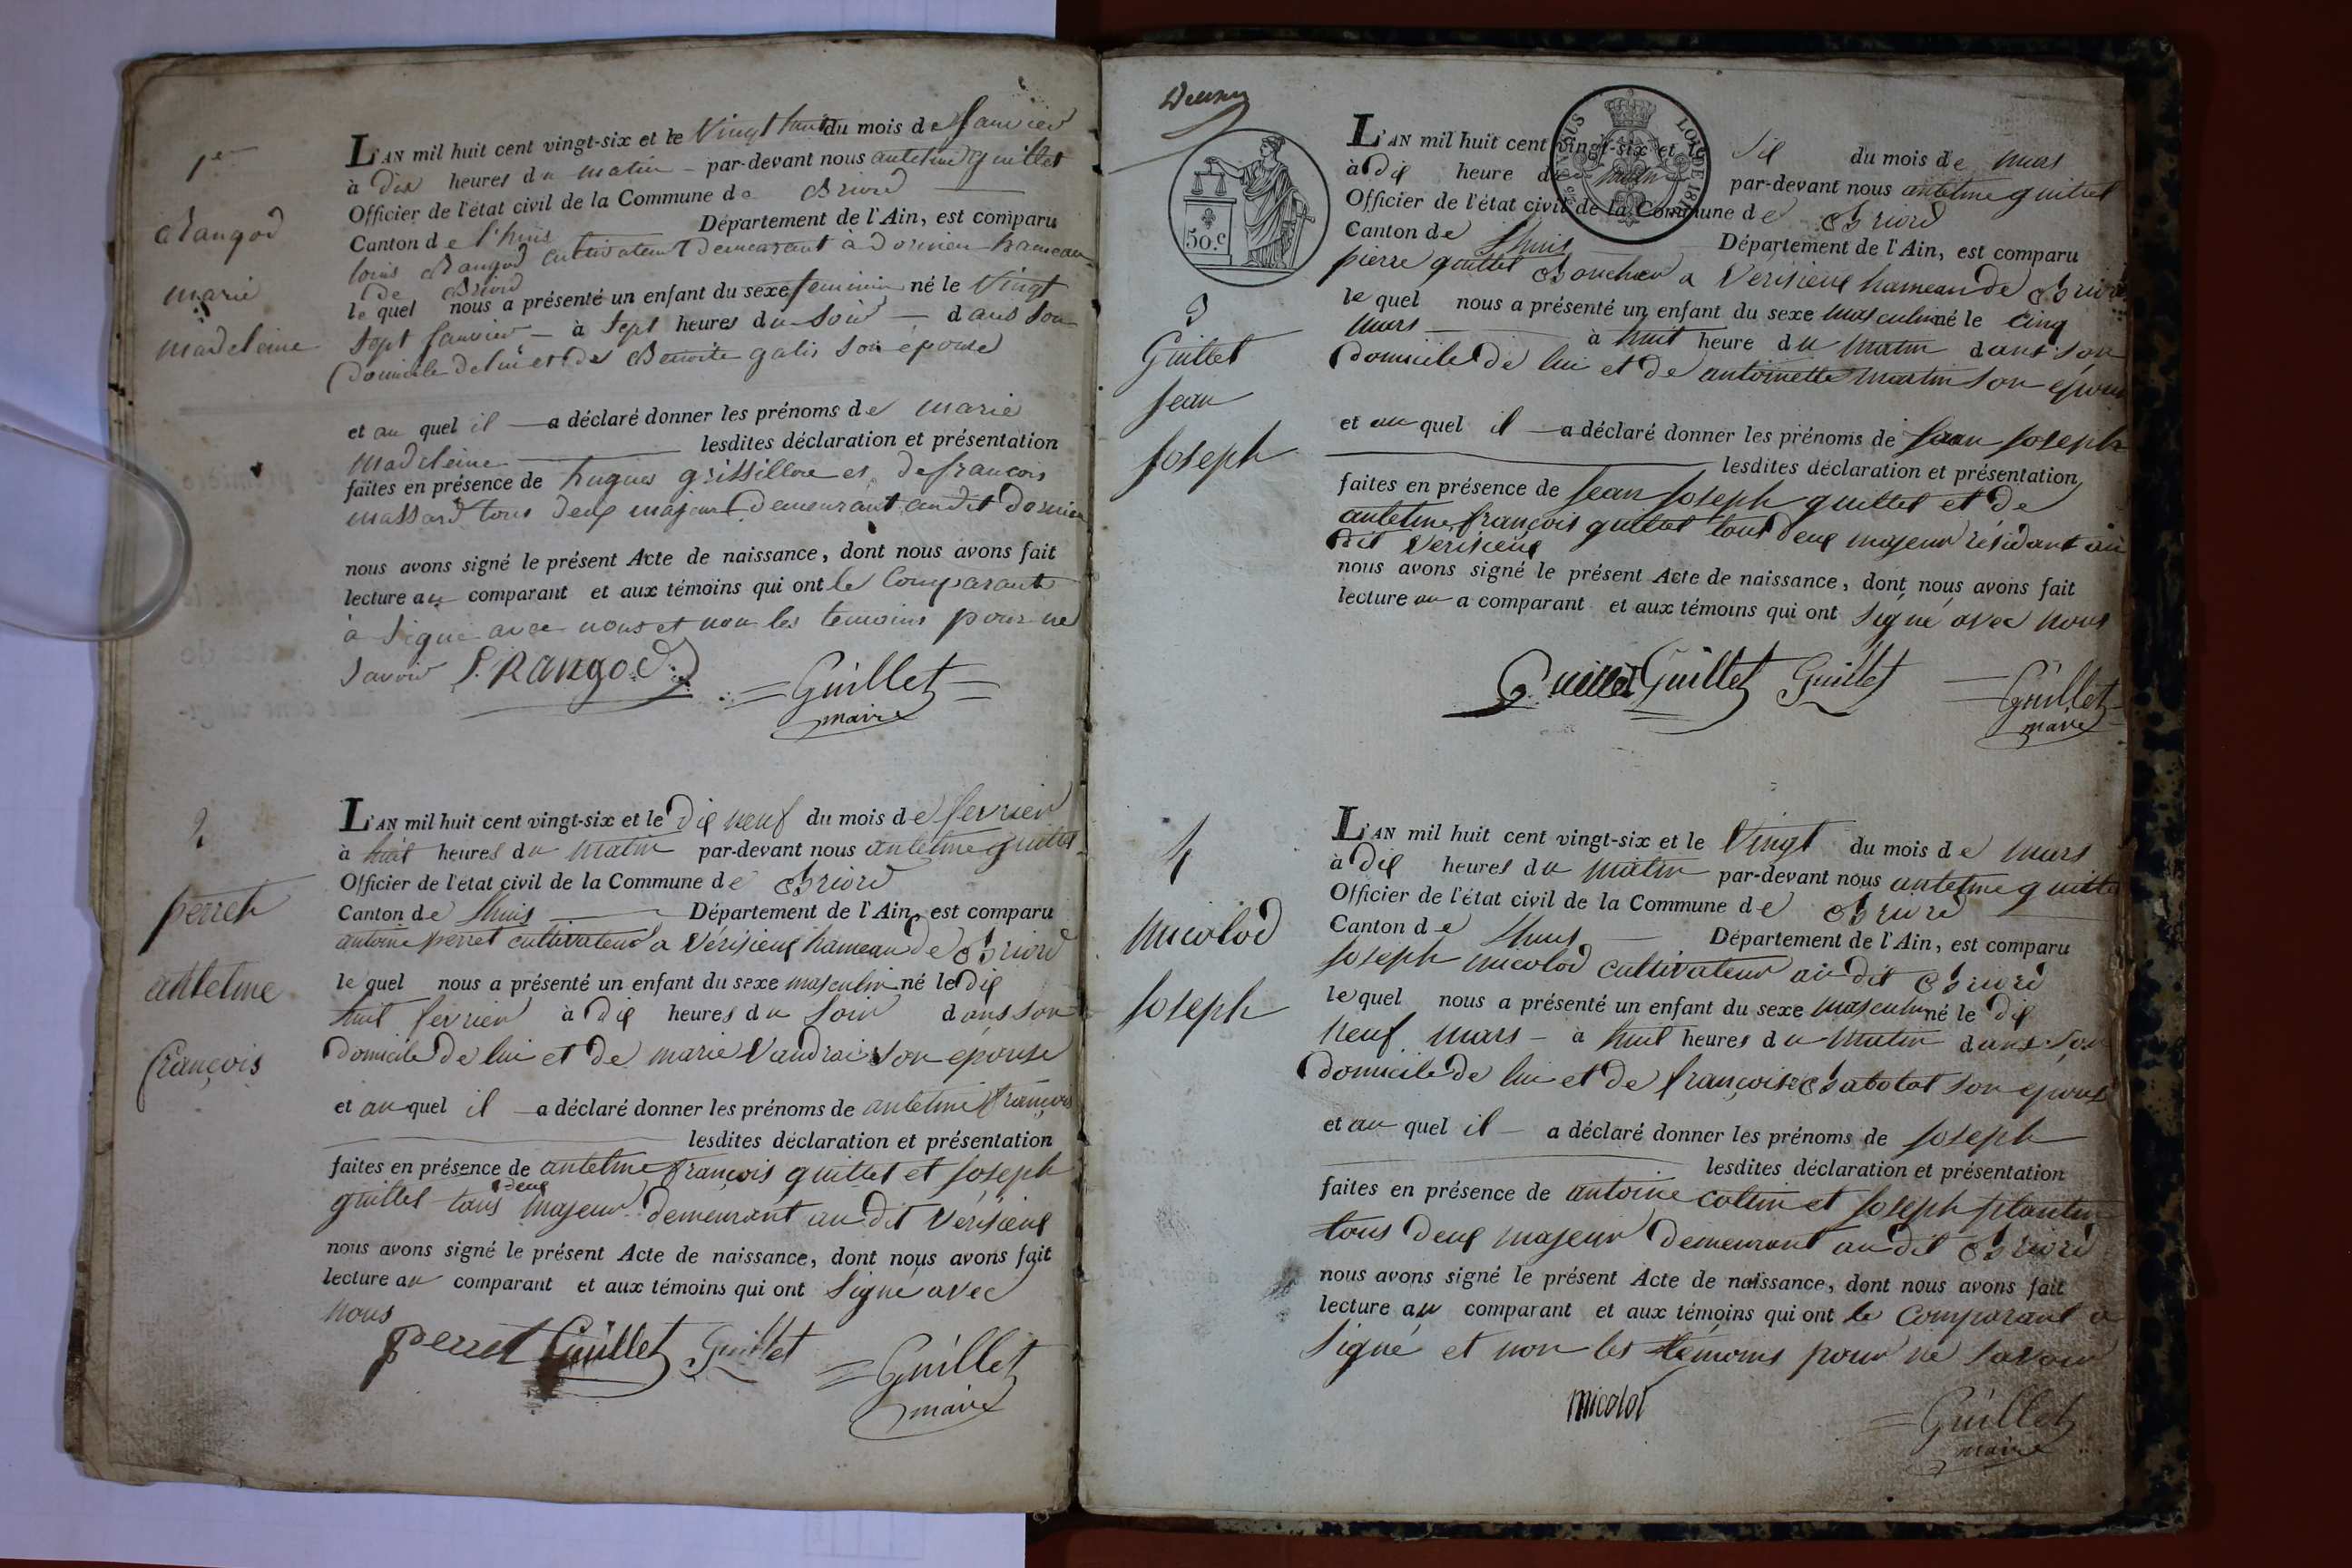 1er
Rangod
marie
madeleine
L'AN mil huit cent vingt-six et le Vingt huit du mois de janvier
à dix heures du matin par-devant nous antelme guillet
Officier de l'état civil de la Commune de Briord
Canton de l'huis Département de l'Ain, est comparu
louis Rangod cultivateur demeurant à dornieu hameau
de Briord
le quel nous a présenté un enfant du sexe feminin né le Vingt
Sept janvier à Sept heures du Soir dans Son
Domicile de lui et de Benoite galis Son épouse
et au quel il a déclaré donner les prénoms de marie
madeleine lesdites déclaration et présentation
faites en présence de hugues et de francois
massard tous deux majeur Demeurant audit dornieu
nous avons signé le présent Acte de naissance, dont nous avons fait
lecture au comparant et aux témoins qui ont le Comparant
à Signé avec nous et non les temoins pour ne
Savoir L. Rangod
Guillet
maire
2
perret
antelme
françois
L'AN mil huit cent vingt-six et le dix neuf du mois de fevrier
à huit heures du matin par-devant nous antelme guillet
Officier de l'état civil de la Commune de Briord
Canton de lhuis Département de l'Ain, est comparu
antoine perret cultivateur a Vérisieux hameau de Briord
le quel nous a présenté un enfant du sexe masculin né le dix
huit fevrier à dix heures du Soir dans son
Domicile de lui et de marie Vaudrai son epouse
et au quel il a déclaré donner les prénoms de antelme françois
lesdites déclaration et présentation
faites en présence de antelme françois guillet et joseph
guillet tous deux majeur demeurant au dit Vérisieux
nous avons signé le présent Acte de naissance, dont nous avons fait
lecture au comparant et aux témoins qui ont Signé avec
nous
perret Guillet Guillet
Guillet
maire
50.c
3
Guillet
jean
joseph
L'AN mil huit cent vingt-six et le six du mois de mars
à dix heure du matin par-devant nous antelme guillet
Officier de l'état civil de la Commune de Briord
Canton de lhuis Département de l'Ain, est comparu
pierre guillet Boucher a Verisieux hameau de Briord
le quel nous a présenté un enfant du sexe masculin né le cinq
mars à huit heure du matin dans son
domicile de lui et de antoinette martin son épouse
et au quel il a déclaré donner les prénoms de jean joseph
lesdites déclaration et présentation
faites en présence de jean joseph guillet et de
antelme françois guillet tous deux majeur résidant au
dit Verisieux
nous avons signé le présent Acte de naissance, dont nous avons fait
lecture au a comparant et aux témoins qui ont signé avec nous
Guillet Guillet Guillet
Guillet
maire
4
micolod
joseph
L'AN mil huit cent vingt-six et le Vingt du mois de mars
à dix heures du matin par-devant nous antelme guillet
Officier de l'état civil de la Commune de Briord
Canton de lhuis Département de l'Ain, est comparu
joseph micolod cultivateur au dit Briord
le quel nous a présenté un enfant du sexe masculin né le dix
neuf mars à huit heures du matin dans son
domicile de lui et de françoise Babolat son epouse
et au quel il a déclaré donner les prénoms de joseph
lesdites déclaration et présentation
faites en présence de antoine collin et joseph plantin
tous deux majeur demeurant au dit Briord
nous avons signé le présent Acte de naissance, dont nous avons fait
lecture au comparant et aux témoins qui ont le comparant a
Signé et non les témoins pour ne savoir
micolot
Guillet
maire